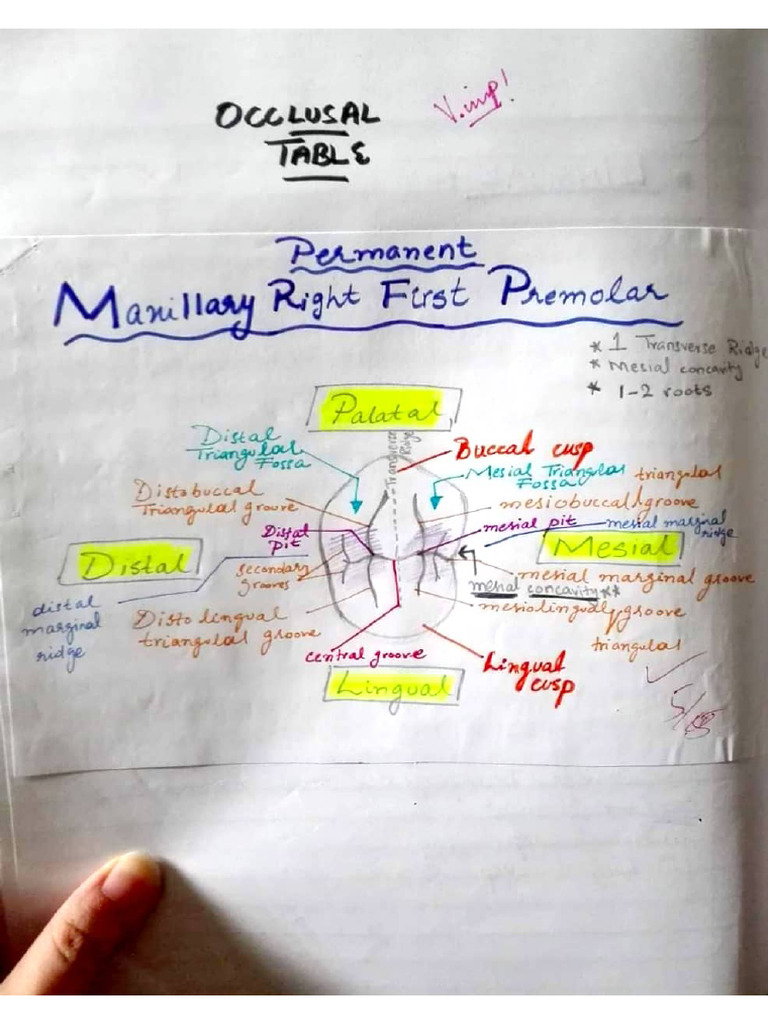 OCCLUSAL
TABLE
V.imp!
Permanent
Maxillary Right First Premolar
* 1 Transverse Ridge
* Mesial concavity
* 1-2 roots
Palatal
Transverse
Ridge
Distal
Triangular
Fossa
Buccal cusp
Mesial Triangular
Fossa
triangular
Distobuccal
Triangular groove
mesiobuccal groove
Distal
pit
mesial pit
mesial marginal
ridge
Distal
Mesial
secondary
grooves
mesial marginal groove
mesial concavity**
distal
marginal
ridge
Disto lingual
triangular groove
mesiolingual groove
triangular
central groove
Lingual
cusp
Lingual